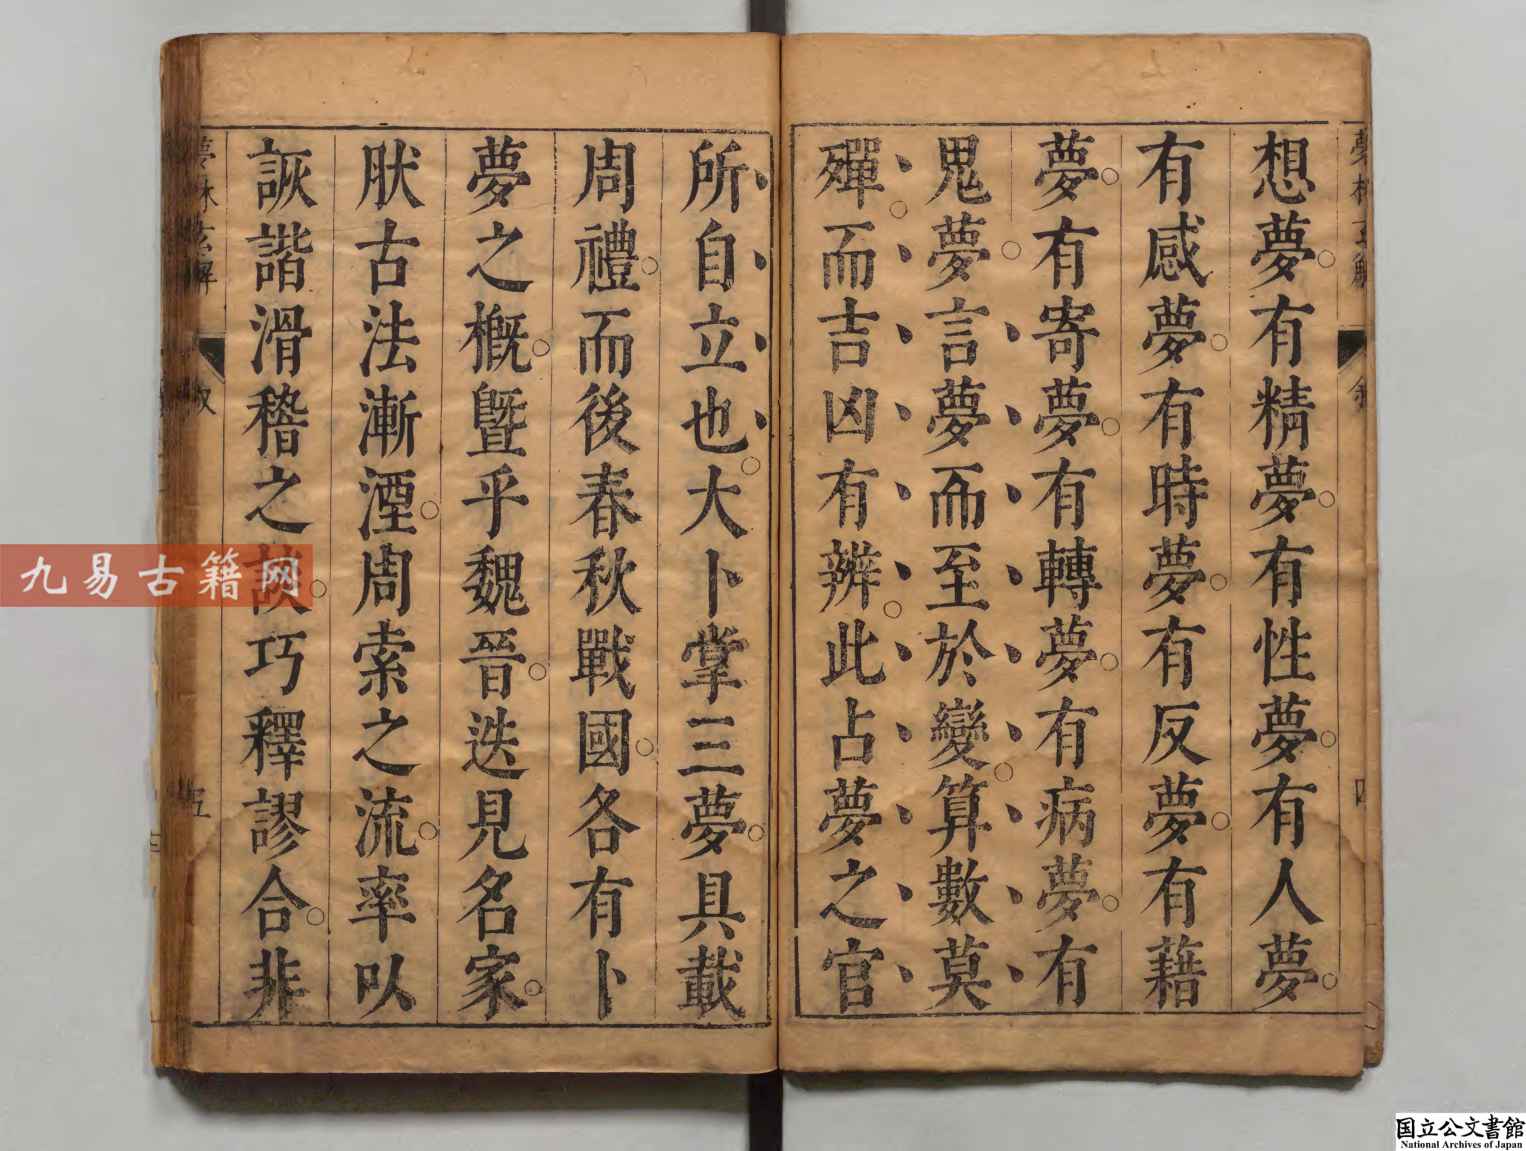 想夢有精夢有性夢有人夢
有感夢有時夢有反夢有藉
夢有寄夢有轉夢有病夢有
鬼夢言夢而至於變算數莫
殫而吉凶有辨此占夢之官
所自立也大卜掌三夢具載
周禮而後春秋戰國各有卜
夢之概曁乎魏晉迭見名家
肰古法漸湮周索之流率以
詼諧滑稽之談巧釋謬合非
夢林玄解
敘
五
四
九易古籍网
国立公文書館
National Archives of Japan